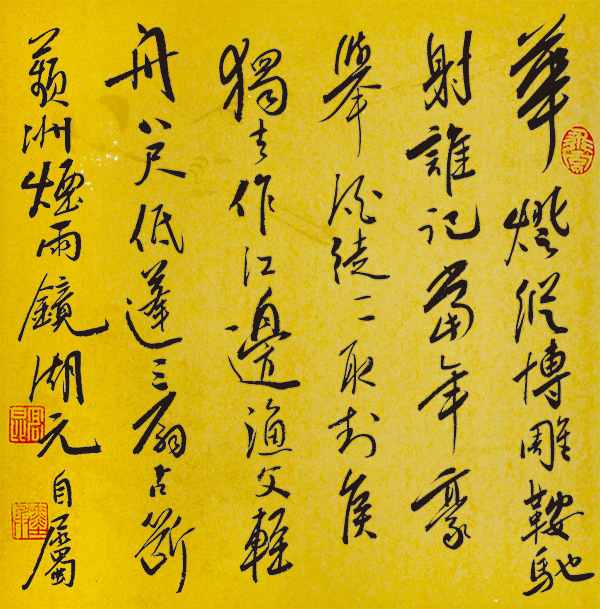 華燈縱博雕鞍馳
射誰記當年豪
舉酒徒一一取封侯
獨去作江邊漁父輕
舟八尺低篷三扇占斷
蘋洲煙雨鏡湖元自屬